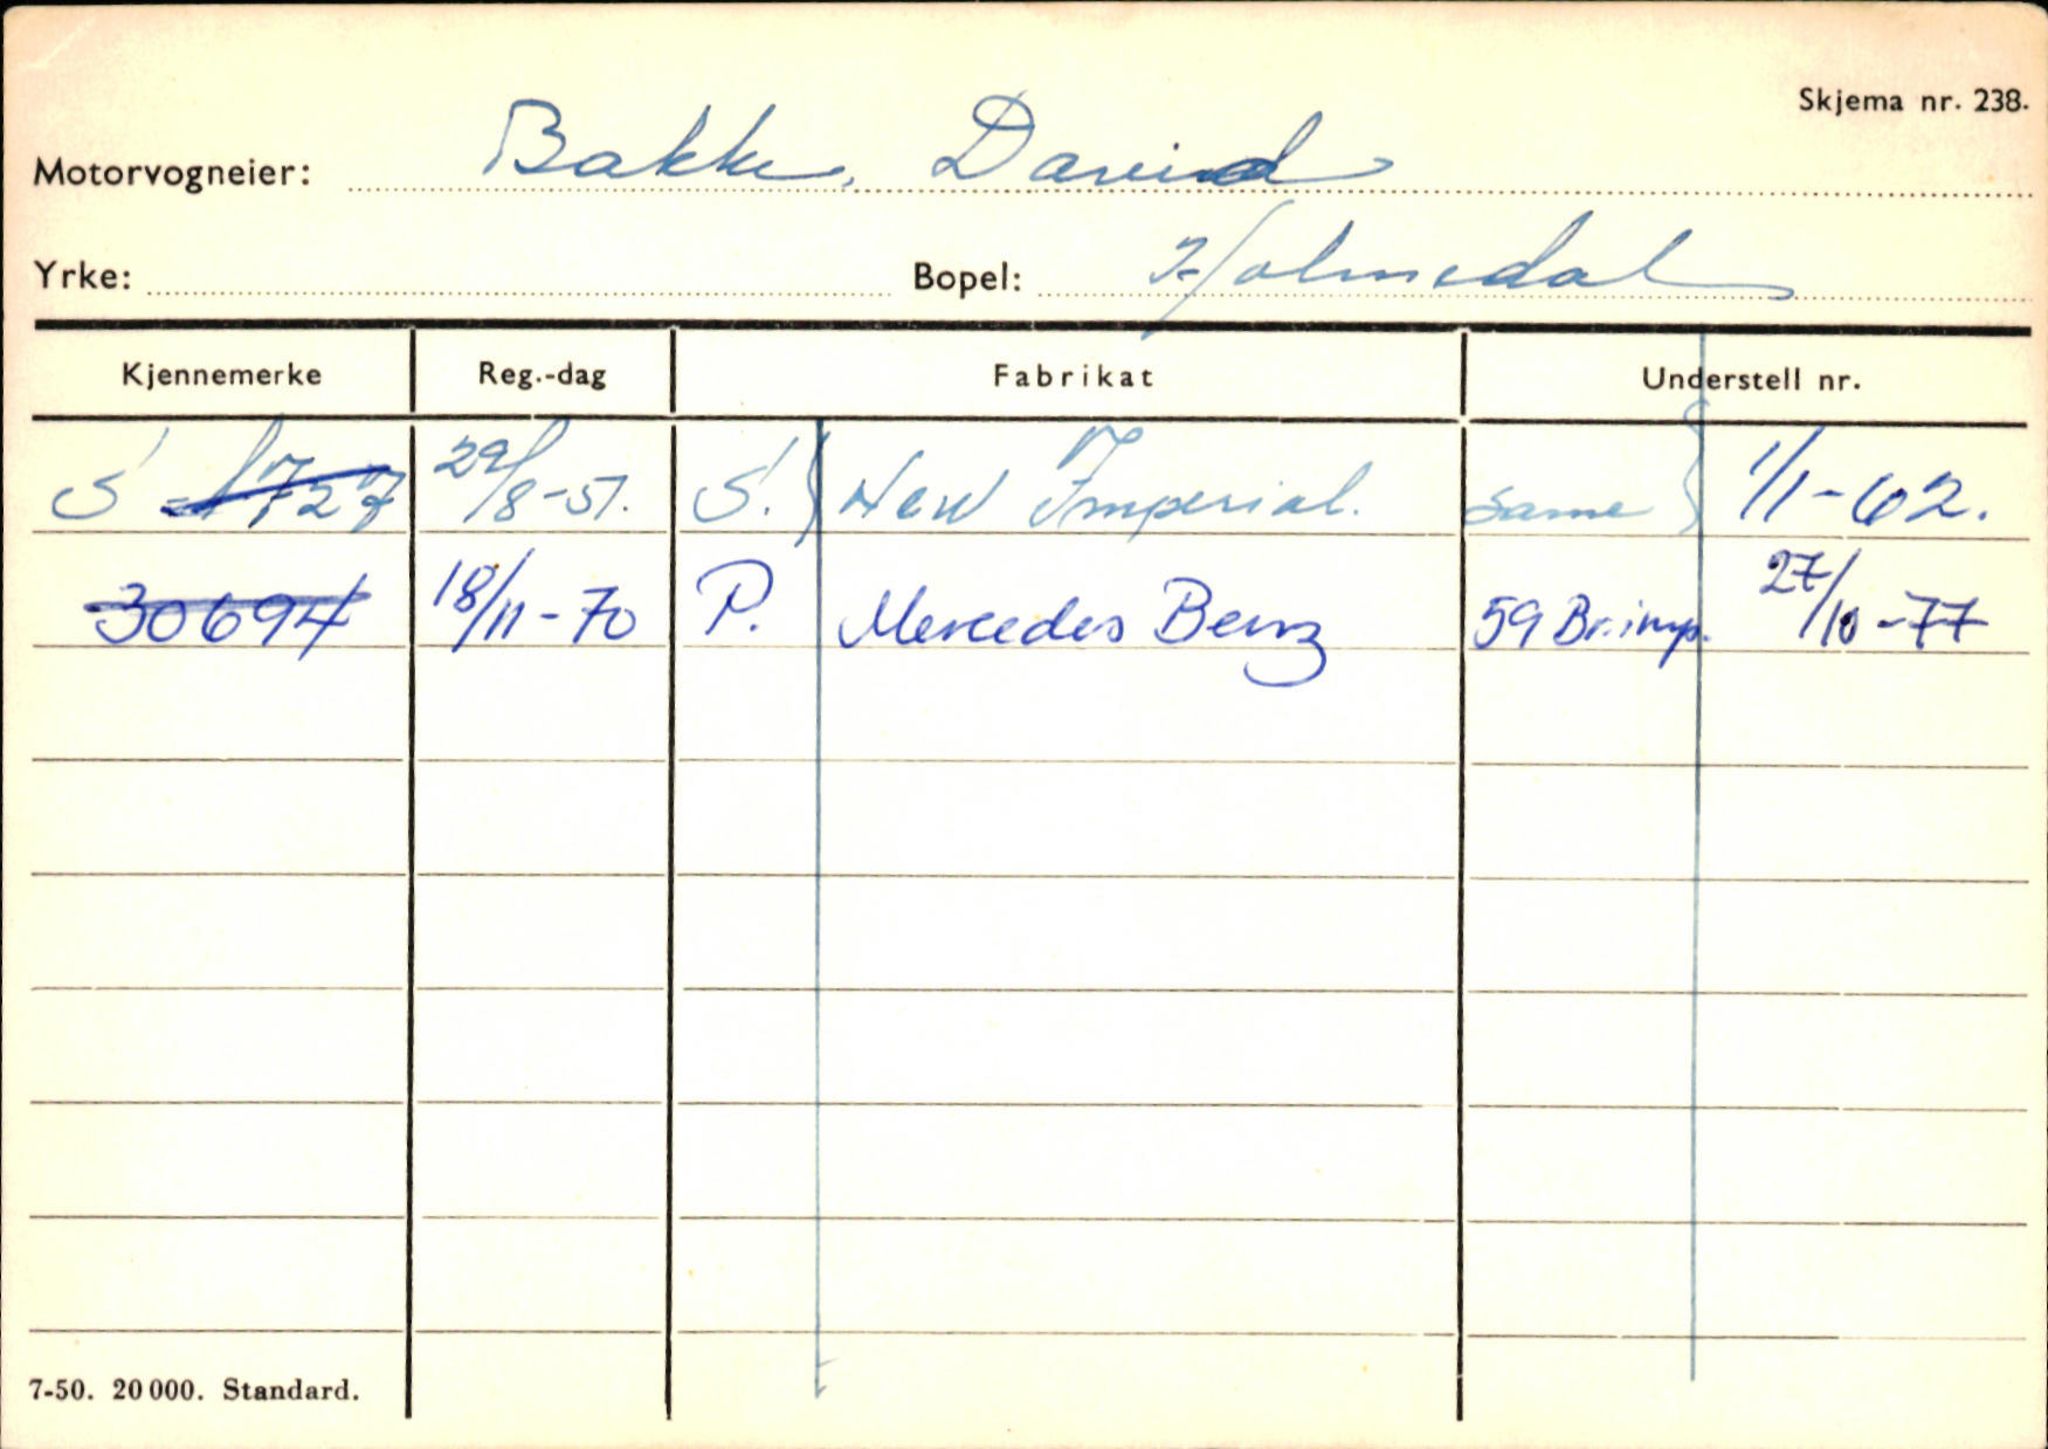 Skjema nr. 238.
Motorvogneier: Bakke, David
Yrke: Bopel: Holmedal
Kjennemerke Reg.-dag Fabrikat Understell nr.
S 29/8-51. S. New Imperial. same 1/1-62.
30694 18/11-70 P. Mercedes Benz 59 Br.imp. 27/10-77
7-50. 20 000. Standard.